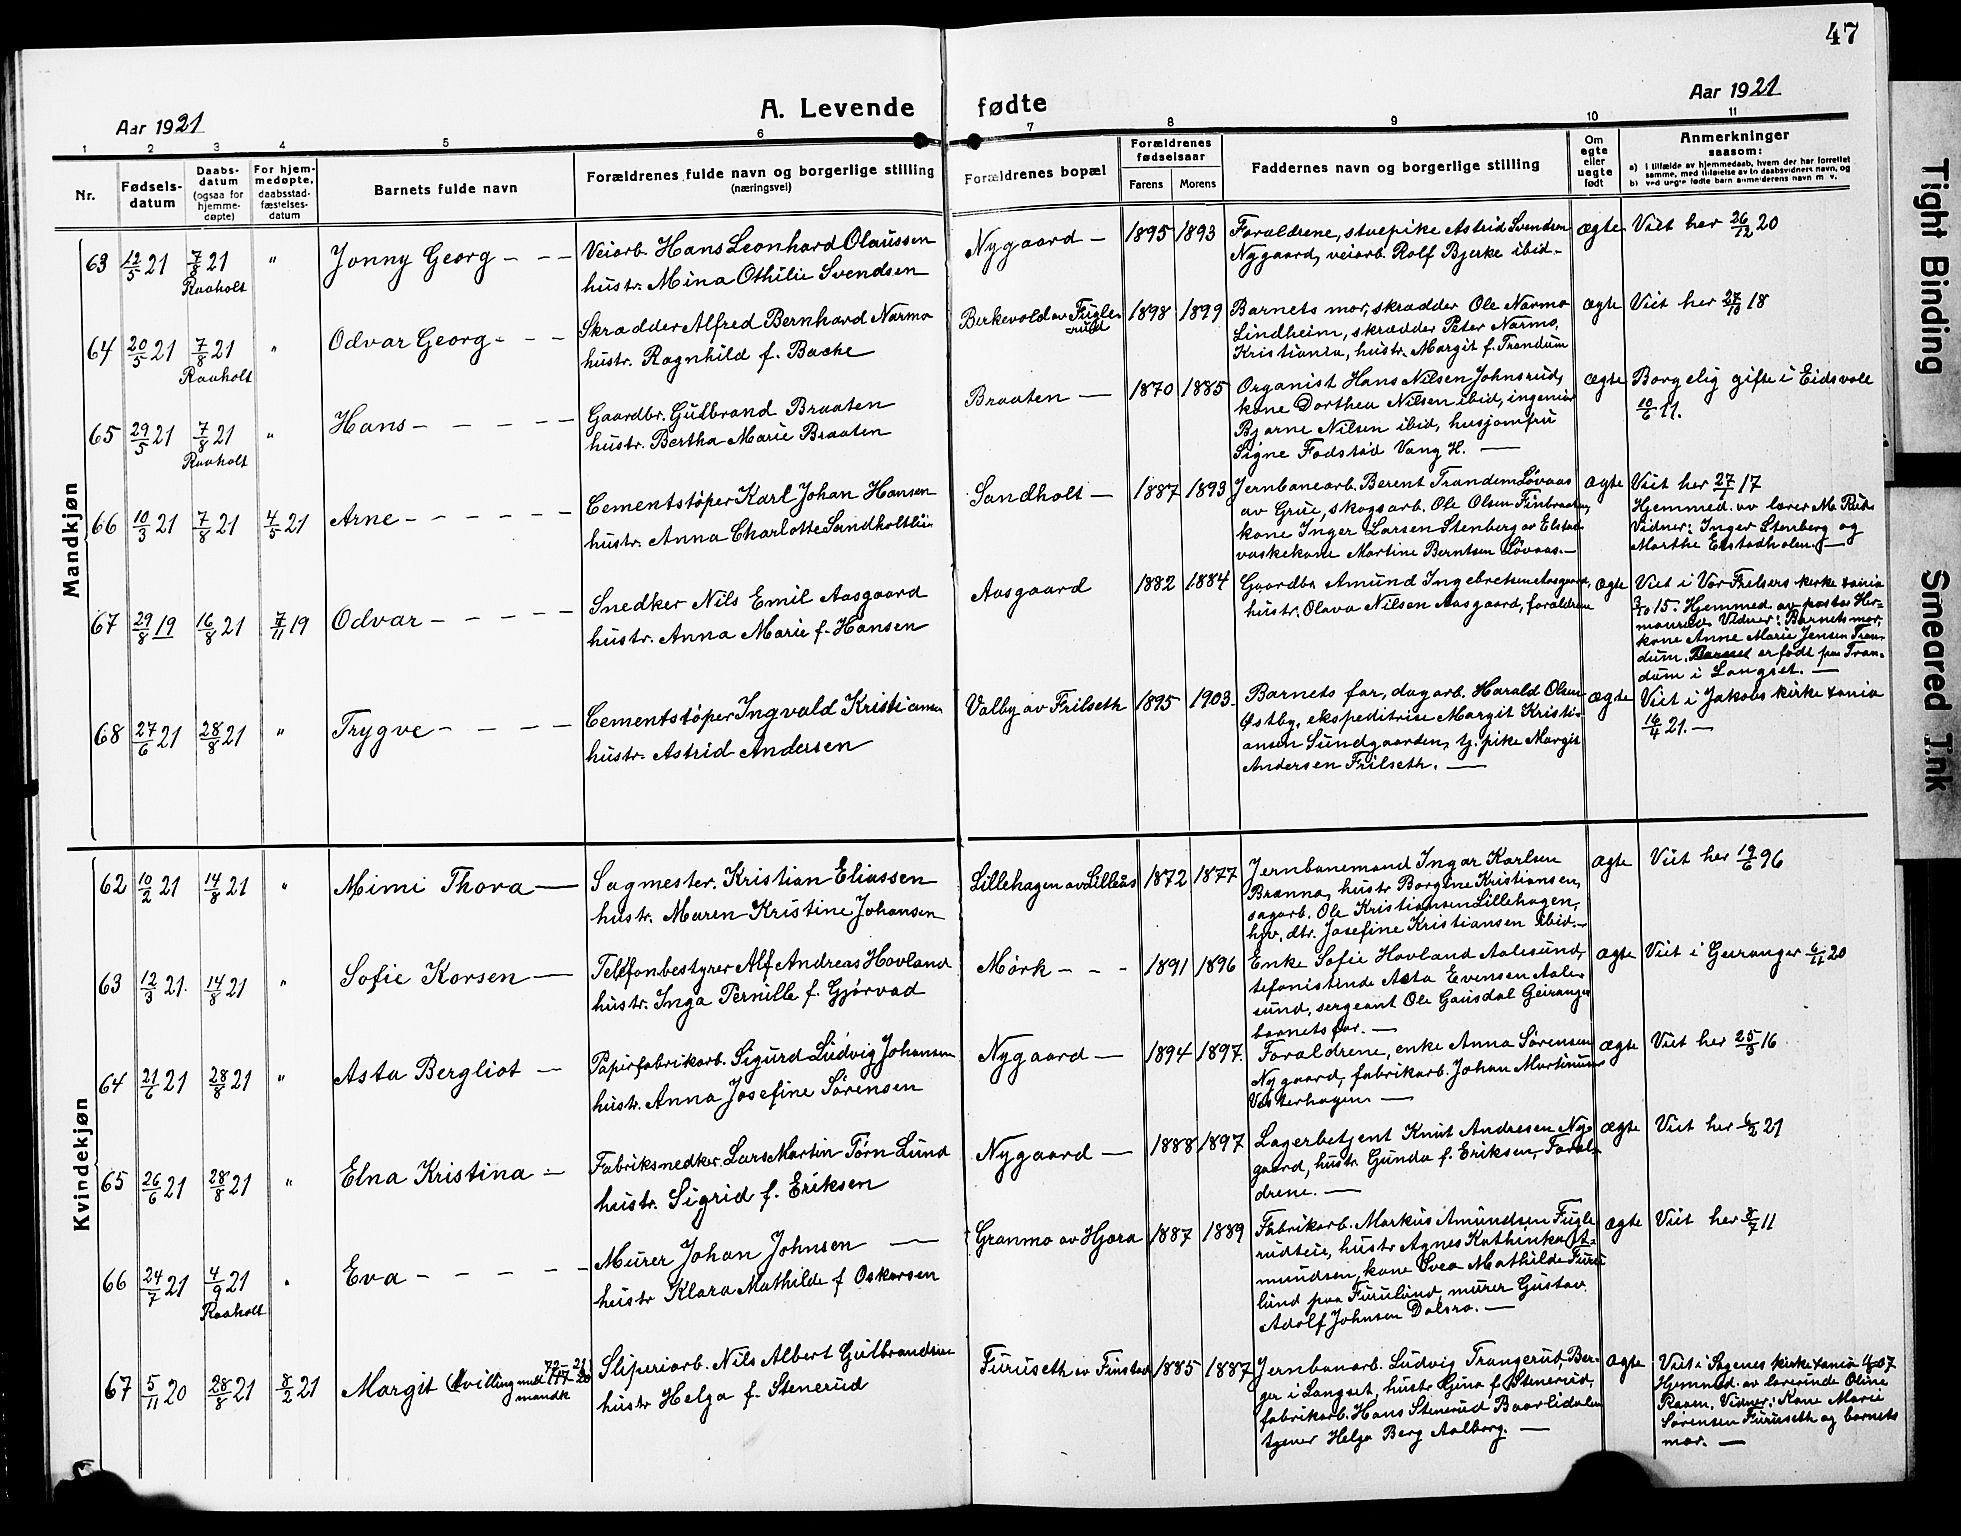 47
Aar 1921
A. Levende fødte
Aar 1921
1 2 3 4 5 6 7 8 9 10 11
Nr.
Fødsels-
datum
Daabs-
datum
(ogsaa for
hjemme-
døpte)
For hjem-
medøpte,
daabsstad-
fæstelses-
datum
Barnets fulde navn
Forældrenes fulde navn og borgerlige stilling
(næringsvei)
Forældrenes bopæl
Forældrenes
fødselsaar
Farens Morens
Faddernes navn og borgerlige stilling
Om
egte
eller
uegte
født
Anmerkninger
saasom:
a) i tilfælde av hjemmedaab, hvem der har forrettet
samme, med tilføielse av to daabsvidners navn, og
b) ved uegte fødte barn anmelderens navn m. v.
Mandkjøn
63 12/5 21 7/8 21 Raaholt " Jonny Georg - - -
Veiarb. Hans Leonhard Olaussen
hustr. Mina Othilie Svendsen
Nygaard - 1895 1893
Forældrene, stuepike Astrid Svendsen
Nygaard, veiarb. Rolf Bjerke ibid-
ægte Viet her 26/12 20
64 20/5 21 7/8 21 Raaholt " Odvar Georg - - -
Skrædder Alfred Bernhard Narmo
hustr. Ragnhild f. Bache
Berkevold av Fugle-
rud 1898 1899
Barnets mor, skrædder Ole Narmo
Lindheim, skrædder Peter Narmo,
Kristiania, hustr. Margit f. Trandum
ægte Viet her 18
65 29/5 21 7/8 21 Raaholt " Hans - - - - -
Gaardbr. Gulbrand Braaten
hustr. Bertha Marie Braaten
Braaten - 1870 1885
Organist Hans Nilsen Johnsrud,
kone Dorthea Nilsen ibid, ingeniør
Bjarne Nilsen ibid, husjomfru
Signe Fodstad Vang H. -
ægte Borgelig gifte i Eidsvold
10/6 11.
66 10/3 21 7/8 21 4/5 21 Arne - - - - - -
Cementstøper Karl Johan Hansen
hustr. Anna Charlotte Sandholtlie
Sandholt - 1887 1893
Jernbanearb. Berent Trandem Løvaas
av Grue, skogsarb. Ole Olsen Finbraaten,
kone Inger Larsen Stenberg av Elstad
vaskekone Martine Berntsen Løvaas. -
ægte Viet her 27/1 17
Hjemmed. av lærer M. Rud.
Vidner: Inger Stenberg og
Marthe Elstadholen. -
67 29/8 19 16/8 21 7/11 19 Odvar - - - -
Snedker Nils Emil Aasgaard
hustr. Anna Marie f. Hansen
Aasgaard 1882 1884
Gaardbr. Amund Ingebretsen Aasgaard,
hustr. Olava Nilsen Aasgaard, forældrene
ægte Viet i Vor Frelsers kirke xania
3/10 15. Hjemmed. av pastor Her-
manrud. Vidner: Barnets mor,
kone Anne Marie Jensen Tran-
dum. Barnet er født paa Tran-
dum i Langset. -
68 27/6 21 28/8 21 " Trygve - - - -
Cementstøper Ingvald Kristiansen
hustr. Astrid Andersen
Valby av Frilseth 1895 1903
Barnets far, dagarb. Harald Olsen
Østby, ekspeditrise Margit Kristi-
ansen Sundgaarden, tj. pike Margit
Andersen Frilseth. -
ægte Viet i Jakobs kirke xania
16/4 21. -
Kvindekjøn
62 10/2 21 14/8 21 " Mimi Thora -
Sagmester. Kristian Eliassen
hustr. Maren Kristine Johansen
Lillehagen av Lilleaas 1872 1877
Jernbanemand Ingar Karlsen
Brænna, hustr Borgine Kristiansen,
sagarb. Ole Kristiansen Lillehagen,
hjv. dtr. Josefine Kristiansen ibid. -
ægte Viet her 19/6 96
63 12/3 21. 14/8 21 " Sofie Korsen -
Telefonbestyrer Alf Andreas Hovland
hustr. Inga Pernille f. Gjørvad
Mørk - - - 1891 1896
Enke Sofie Hovland Aalesund,
telefonistinde Asta Evensen Aale-
sund, sergeant Ole Gausdal Geiranger
barnets far. -
ægte Viet i Geiranger 6/11 20
64 21/6 21 28/8 21 " Asta Bergliot -
Papirfabrikarb. Sigurd Ludvig Johansen
hustr. Anna Josefine Sørensen
Nygaard - 1894 1897.
Forældrene, enke Anna Sørensen
Nygaard, fabrikarb. Johan Martinius
Vesterhagen. -
ægte Viet her 25/3 16
65 26/6 21 28/8 21 " Elna Kristina -
Fabriksnedker. Lars Martin Tørn-Lund
hustr. Sigrid f. Eriksen
Nygaard - 1888 1897
Lagerbetjent Knut Andresen Ny-
gaard, hustr. Gunda f. Eriksen, Foræl-
drene. -
ægte Viet her 6/2 21
66 24/7 21 4/9 21 Raaholt " Eva - - - - -
Murer Johan Johnsen -
hustr Klara Mathilde f Oskarsen
Granmo av Hjæra 1887 1889
Fabrikarb. Markus Amundsen Fugle-
rudteie, hustr Agnes Kathinka A-
mundsen, kone Svea Mathilde Furu-
lund paa Furulund, murer Gustav
Adolf Johnsen Dalsro. -
ægte Viet her 8/7 11
67 5/11 20 28/8 21 8/2 21 Margit tvilling med mandk
Sliperiarb. Nils Albert Gulbrandsen
hustr Helga f. Stenerud
Furuseth av Finstad 1885 1887
Jernbanarb. Ludvig Trangerud, Ber-
ger i Langset, hustr Gina f. Stenerud,
fabrikarb. Hans Stenerud Baarlidalen
tjener Helga Berg Aalborg. -
ægte Viet i Sagenes kirke xania 07
Hemmed. av lærerinde Oline
Raaen. Vidner: Kone Marie
Sørensen Furuseth og barnets
mor. -
Tight Binding
Smeared Ink